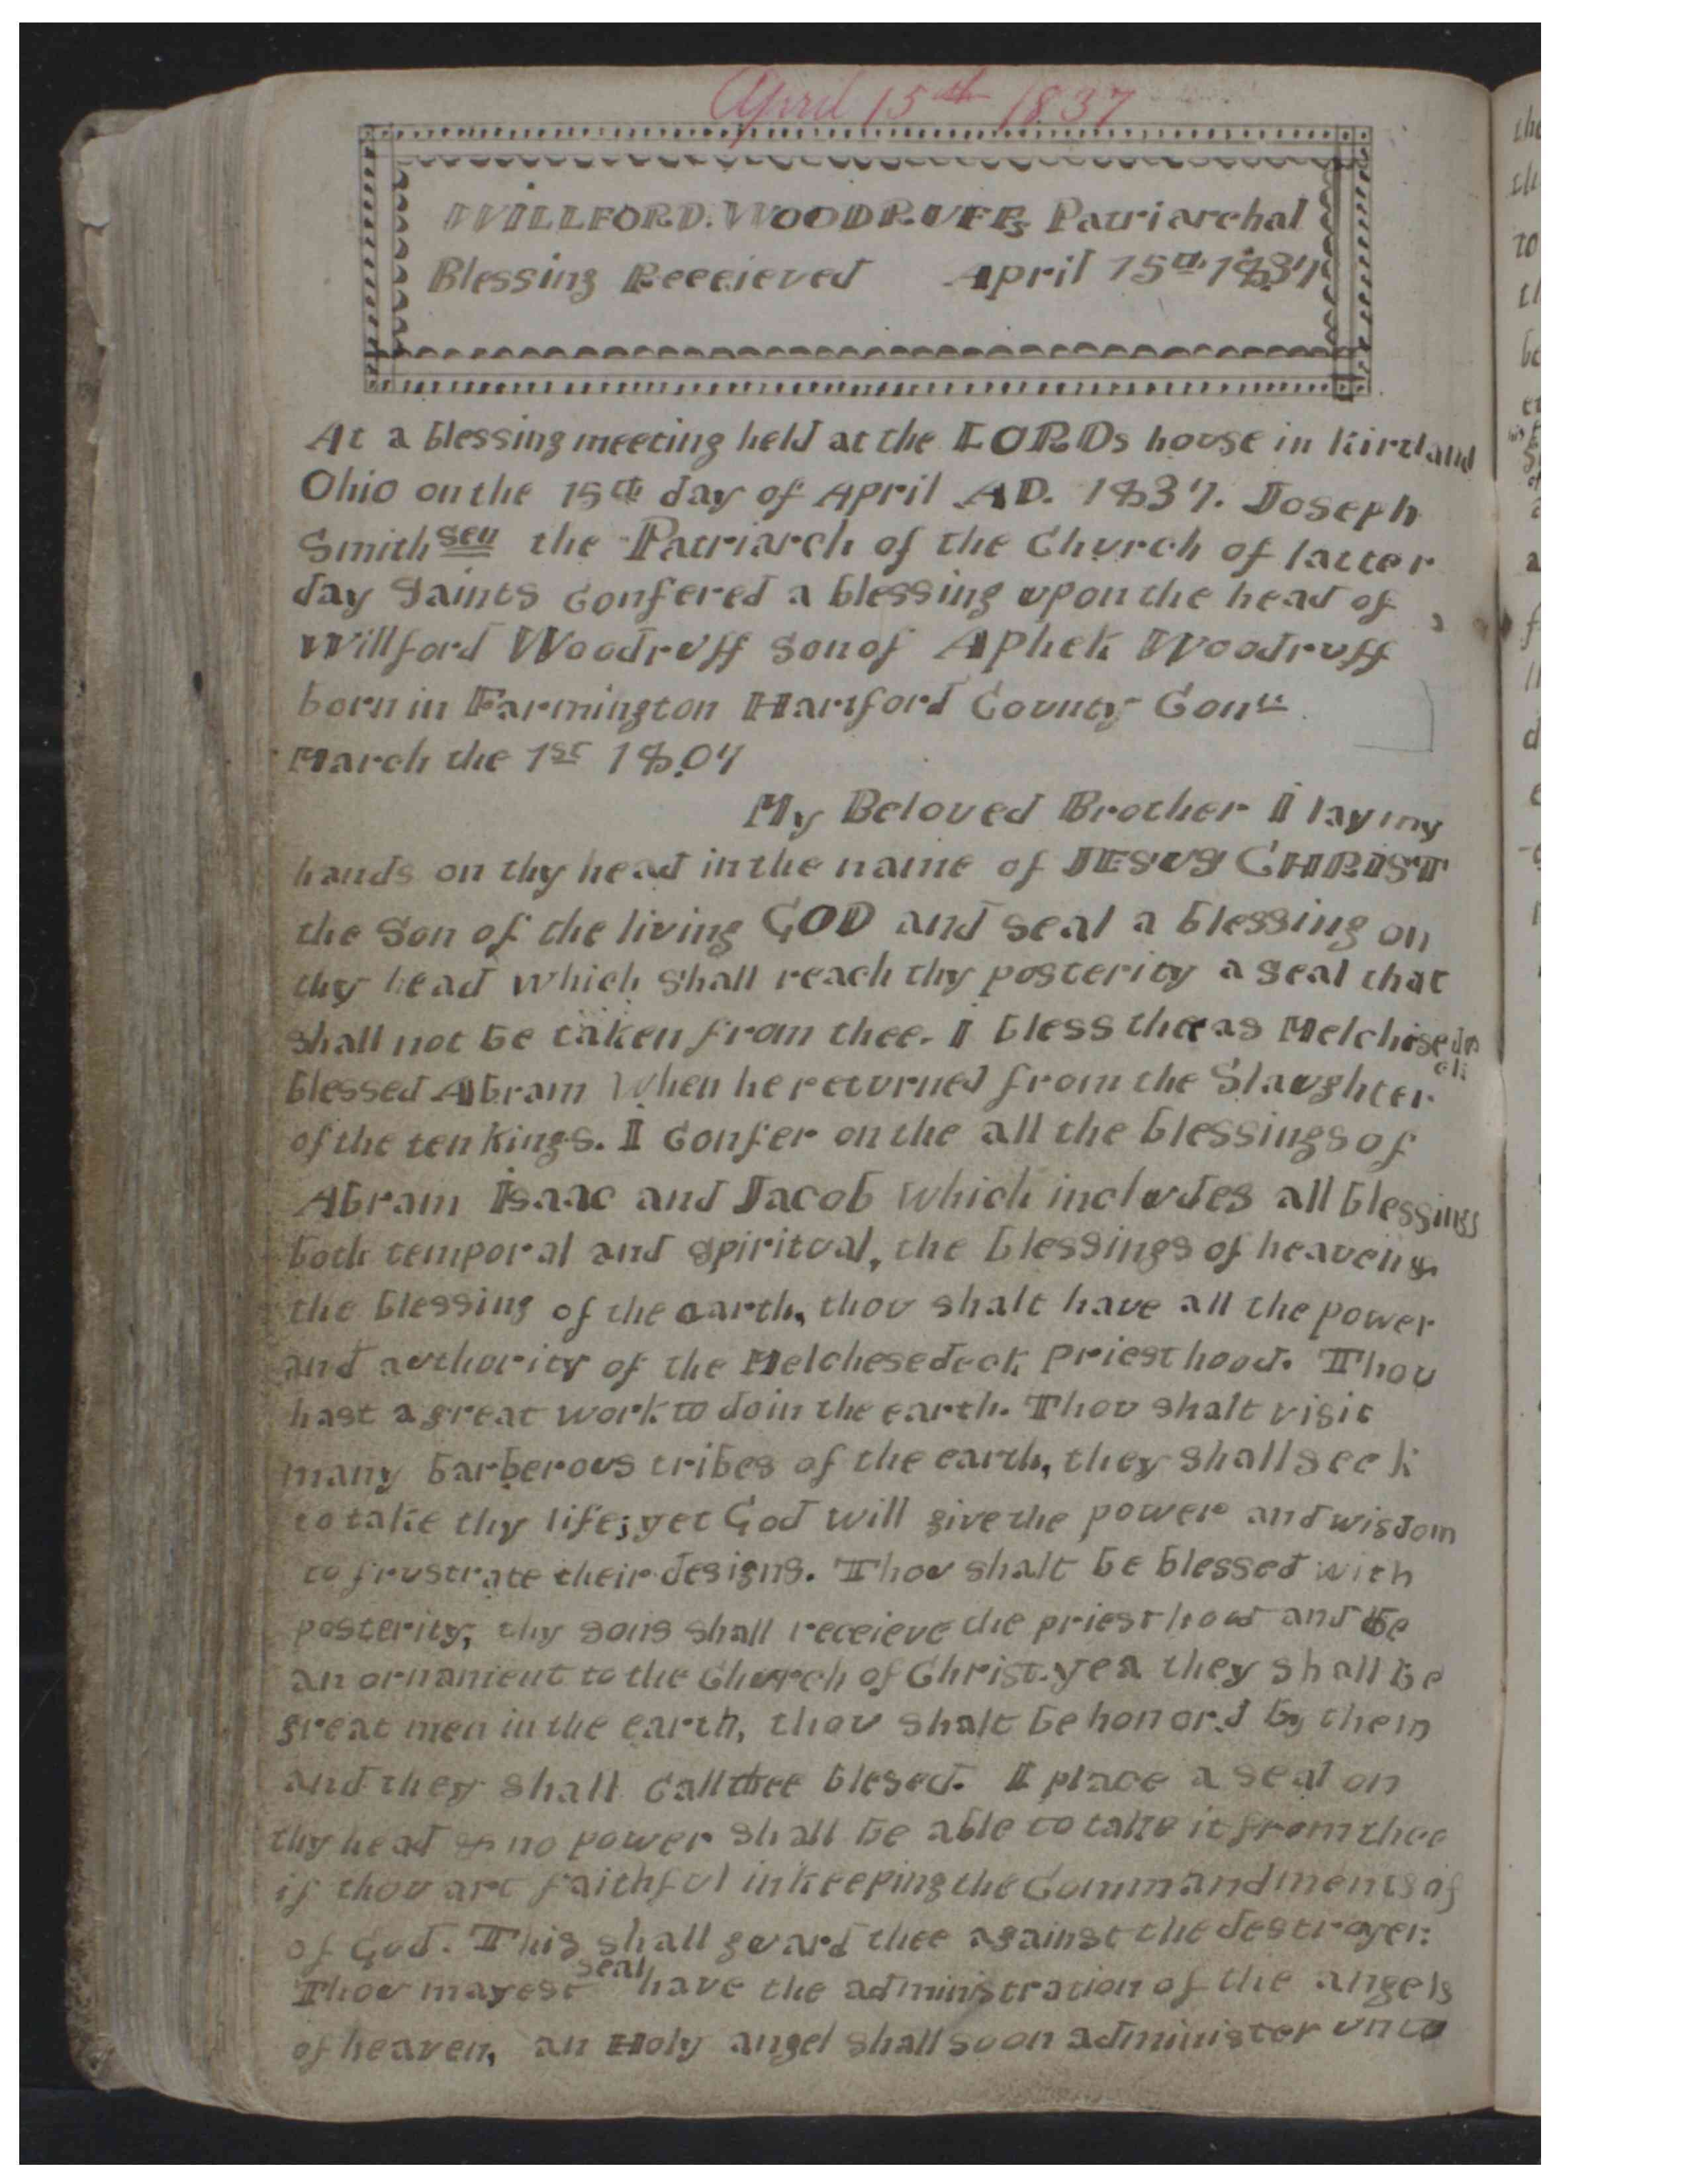 April 15th 1837
WILLFORD. WOODRUFFs Patriarchal
Blessing Receeieved April 15th 1837
At a blessing meeting held at the LORDs house in Kirtland
Ohio on the 15th day of April AD. 1837. Joseph
Smith sen the Patriarch of the Church of latter
day Saints Confered a blessing upon the head of
Willford Woodruff Son of Aphek Woodruff
born in Farmington Hartford County Conn
March the 1st 1807
My Beloved Brother I lay my
hands on thy head in the name of JESUS CHRIST
the Son of the living GOD and seal a blessing on
thy head which shall reach thy posterity a seal that
shall not be taken from thee. I bless thee as Melchisedeck
blessed Abram When he returned from the Slaughter
of the ten kings. I Confer on the all the blessings of
Abram Isaac and Jacob which includes all blessings
both temporal and spiritual, the blessings of heaven &
the blessing of the earth, thou shalt have all the power
and authority of the Melchesedeck Priesthood. Thou
hast a great work to do in the earth. Thou shalt visit
many barberous tribes of the earth, they shall seek
to take thy life; yet God will give the power and wisdom
to frustrate their designs. Thou shalt be blessed with
posterity, thy sons shall receieve the priesthood and be
an ornament to the Church of Christ. yea they shall be
great men in the earth, thou shalt be honor.d by them
and they shall Call thee blesed. I place a seal on
thy head & no power shall be able to take it from thee
if thou art faithful in keeping the Commandments of
of God. This shall guard thee against the destroyer.
seal
Thou mayest have the administration of the angels
of heaven, an Holy angel shall soon administer unto